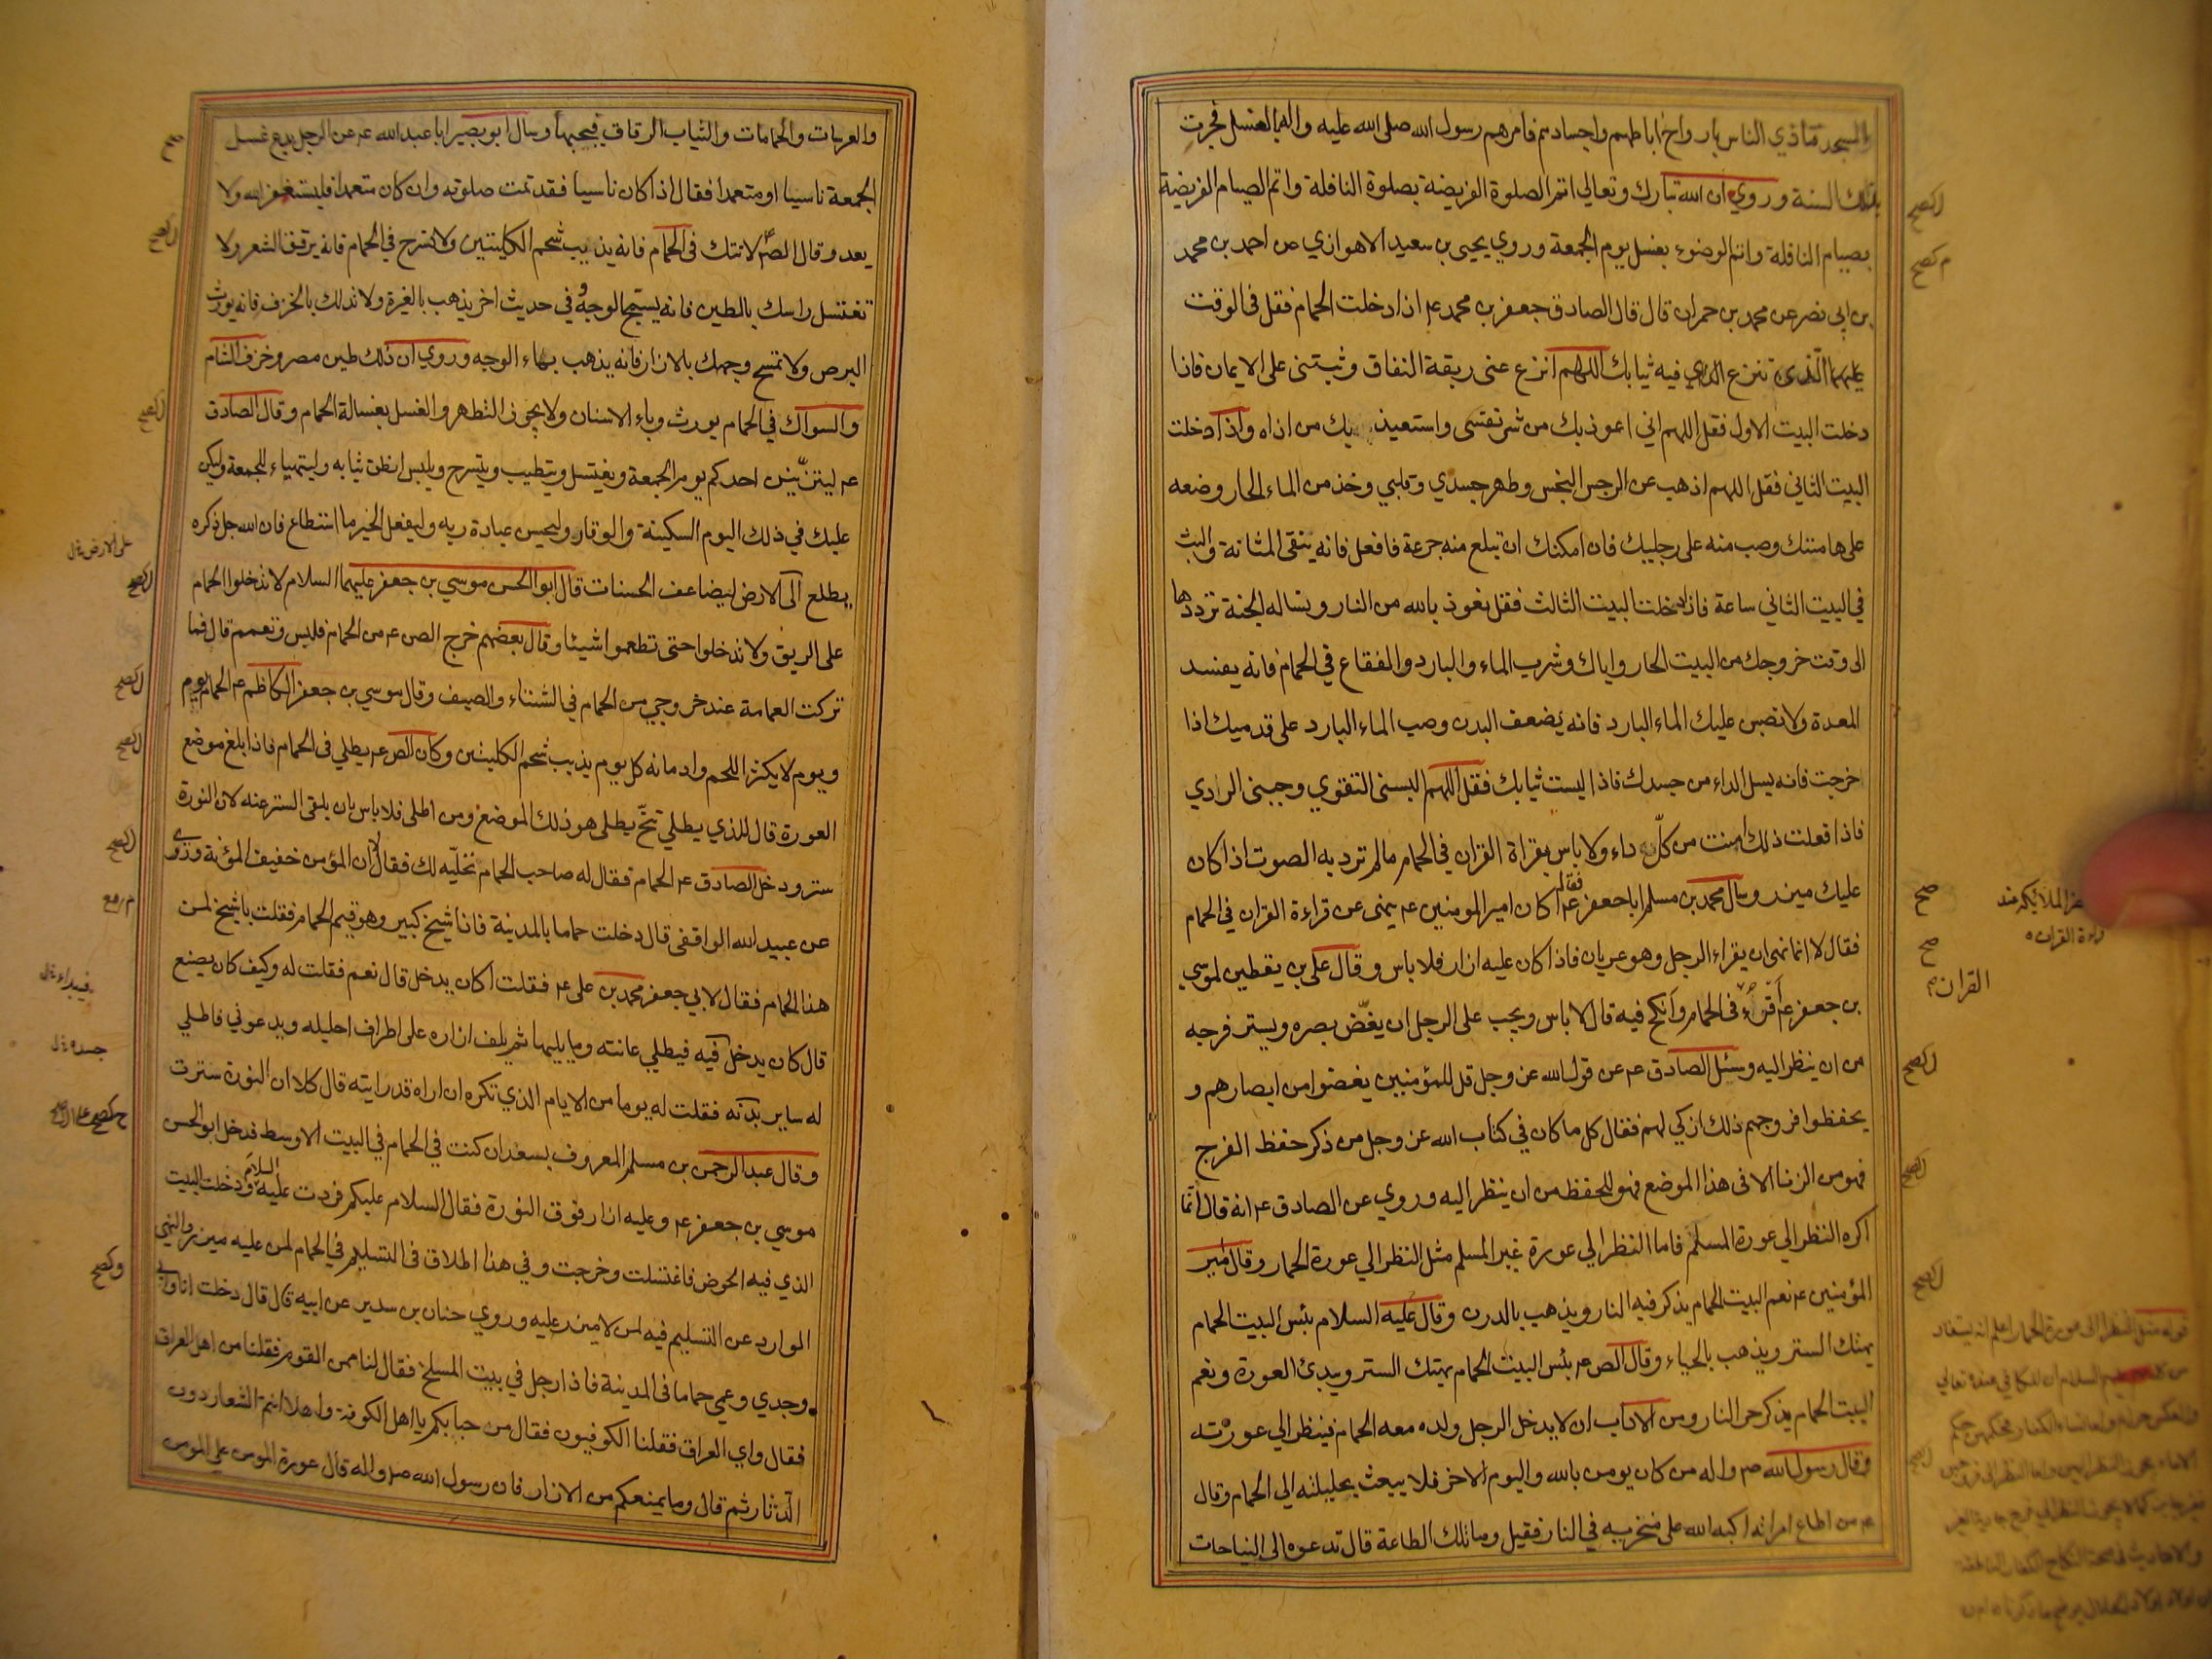 المسجد فتاذي الناس بارواح اباطهم واجسادهم فامرهم رسول الله صلى الله عليه واله بالغسل فجرت
بذلك السنة وروي ان الله تبارك وتعالى اتم الصلوة الفريضة بصلوة النافلة واتم الصيام الفريضة
بصيام النافلة واتم الوضوء بغسل يوم الجمعة وروي يحيى بن سعيد الاهوازي عن احمد بن محمد
بن ابي نصر عن محمد بن حمران قال قال الصادق جعفر بن محمد ع اذا دخلت الحمام فقل في الوقت
الذي تنزع فيه ثيابك اللهم انزع عني ربقة النفاق وثبتني على الايمان فاذا
دخلت البيت الاول فقل اللهم اني اعوذ بك من شر نفسي واستعيذ بك من اذاه واذا دخلت
البيت الثاني فقل اللهم اذهب عن الرجس النجس وطهر جسدي وقلبي وخذ من الماء الحار وضعه
على هامتك وصب منه على رجليك فان امكنك ان تبلع منه جرعة فافعل فانه ينقى المثانة والبث
في البيت الثاني ساعة فاذا دخلت البيت الثالث فقل نعوذ بالله من النار ونساله الجنة ترددها
الى وقت خروجك من البيت الحار واياك وشرب الماء والبارد والفقاع في الحمام فانه يفسد
المعدة ولا تصبن عليك الماء البارد فانه يضعف البدن وصب الماء البارد على قدميك اذا
خرجت فانه يسل الداء من جسدك فاذا لبست ثيابك فقل اللهم البسني التقوي وجنبني الردي
فاذا فعلت ذلك امنت من كل داء ولا باس بقراة القران في الحمام ما لم ترد به الصوت اذا كان
عليك ميزر وسال محمد بن مسلم ابا جعفر ع فقال اكان امير المومنين ع ينهى عن قراءة القران في الحمام
فقال لا انما نهى ان يقراء الرجل وهو عريان فاذا كان عليه ازار فلا باس وقال علي بن يقطين لموسى
بن جعفر ع أقرء في الحمام وأنكح فيه قال لا باس ويجب على الرجل ان يغض بصره ويستر فرجه
من ان ينظر اليه وسئل الصادق ع عن قول الله عز وجل قل للمؤمنين يغضوا من ابصارهم و
يحفظوا فروجهم ذلك ازكى لهم فقال كل ما كان في كتاب الله عز وجل من ذكر حفظ الفرج
فهو من الزنا الا في هذا الموضع فهو للحفظ من ان ينظر اليه وروي عن الصادق ع انه قال انما
اكره النظر الى عورة المسلم فاما النظر الى عورة غير المسلم مثل النظر الى عورة الحمار وقال امير
المؤمنين ع نعم البيت الحمام يذكر فيه النار ويذهب بالدرن وقال عليه السلام بئس البيت الحمام
يهتك الستر ويذهب بالحياء وقال الص ع بئس البيت الحمام يهتك الستر ويبدئ العورة ونعم
البيت الحمام يذكر حر النار ومن الاداب ان لا يدخل الرجل ولده معه الحمام فينظر الى عورته
وقال رسول الله ص واله من كان يومن بالله واليوم الاخر فلا يبعث بحليلته الى الحمام وقال
ع من اطاع امراته اكبه الله على منخريه في النار فقيل وما تلك الطاعة قال تدعوه الى النياحات
القران
والعرسات والحمامات والثياب الرقاق فيجيبها وسال ابو بصير ابا عبد الله ع عن الرجل يدع غسل
الجمعة ناسيا او متعمدا فقال اذا كان ناسيا فقد تمت صلوته وان كان متعمدا فليستغفر الله ولا
يعد وقال الص ع لا تتك في الحمام فانه يذيب شحم الكليتين ولا تسرح في الحمام فانه يرقق الشعر ولا
تغتسل راسك بالطين فانه يسمج الوجه وفي حديث اخر يذهب بالغيرة ولا تدلك بالخزف فانه يورث
البرص ولا تمسح وجهك بالازار فانه يذهب بهاء الوجه وروي ان ذلك طين مصر وخزف الشام
والسواك في الحمام يورث وباء الاسنان ولا يجوز التطهر والغسل بغسالة الحمام وقال الصادق
ع ليتزينن احدكم يوم الجمعة ويغتسل ويتطيب ويتسرح ويلبس انظف ثيابه وليتهياء للجمعة وليكن
عليك في ذلك اليوم السكينة والوقار وليحسن عبادة ربه وليفعل الخير ما استطاع فان الله جل ذكره
يطلع الى الارض ليضاعف الحسنات قال ابو الحسن موسي بن جعفر عليهما السلام لا تدخلوا الحمام
على الريق ولا تدخلوا حتى تطعموا شيئا وقال بعضهم خرج الص ع من الحمام فلبس وتعمم قال فما
تركت العمامة عند خروجي من الحمام في الشتاء والصيف وقال موسي بن جعفر الكاظم ع الحمام يوم
ويوم لا يكثر اللحم وادمانه كل يوم يذيب شحم الكليتين وكان الص ع يطلي في الحمام فاذا بلغ موضع
العورة قال للذي يطلي تنح يطلي هو ذلك الموضع ومن اطلى فلا باس بان يلقى الستر عنه لان النورة
ستر ودخل الصادق ع الحمام فقال له صاحب الحمام نخليه لك فقال لا ان المؤمن خفيف المؤنة وروى
عن عبيد الله الواقفي قال دخلت حماما بالمدينة فاذا شيخ كبير وهو قيم الحمام فقلت يا شيخ لمن
هذا الحمام فقال لابي جعفر محمد بن علي ع فقلت اكان يدخل قال نعم فقلت له وكيف كان يصنع
قال كان يدخل فيه فيطلي عانته وما يليها ثم يلف ازاره على اطراف احليله ويدعوني فاطلي
له ساير بدنه فقلت له يوما من الايام الذي تكره ان اراه قد رايته قال كلا ان النورة سترت
وقال عبد الرحمن بن مسلم المعروف بسعدان كنت في الحمام في البيت الاوسط فدخل ابو الحسن
موسي بن جعفر ع وعليه ازار فوق النورة فقال السلام عليكم فردت عليه السلام ودخلت البيت
الذي فيه الحوض فاغتسلت وخرجت وفي هذا اطلاق في التسليم في الحمام لمن عليه ميزر والنهي
الوارد عن التسليم فيه لمن لا ميزر عليه وروي حنان بن سدير عن ابيه قال قال دخلت انا وابي
وجدي وعمي حماما في المدينة فاذا رجل في بيت المسلخ فقال لنا ممن القوم فقلنا من اهل العراق
فقال واي العراق فقلنا الكوفيون فقال مرحبا بكم يا اهل الكوفة واهلا انتم الشعار دون
الدثار ثم قال وما يمنعكم من الازار فان رسول الله صلى واله قال عورة المومن على المومن